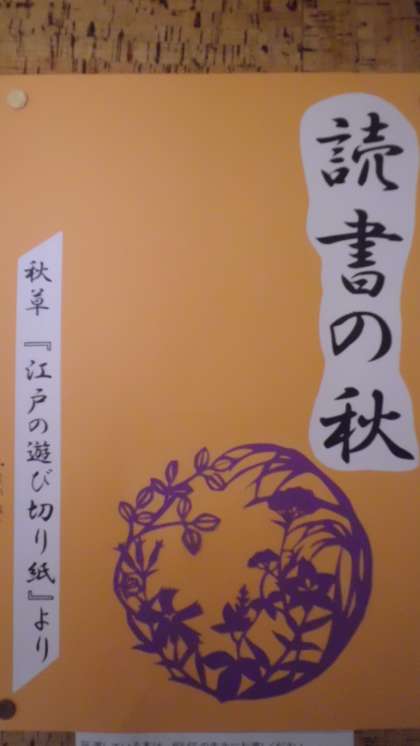 読書の秋
秋草『江戸の遊び切り紙』より